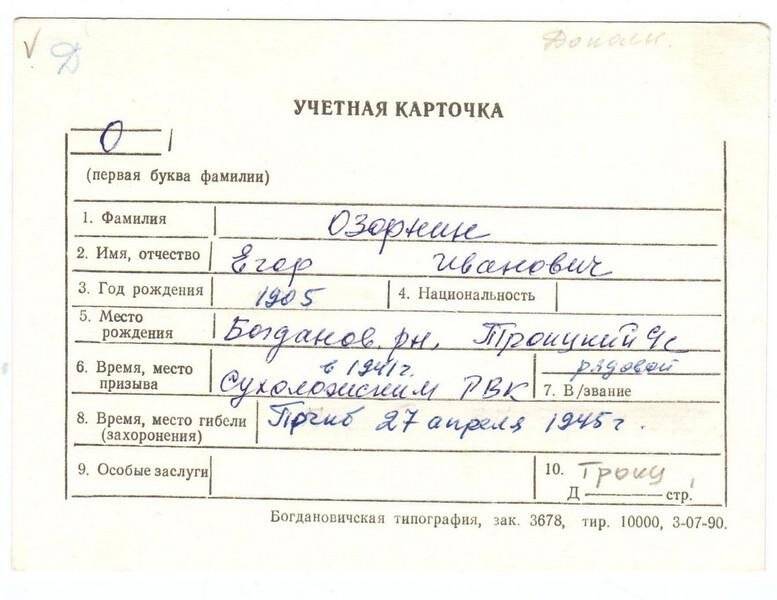 √ Д Дополн.
УЧЕТНАЯ КАРТОЧКА
О
(первая буква фамилии)
1. Фамилия Озорнин
2. Имя, отчество Егор Иванович
3. Год рождения 1905 4. Национальность
5. Место рождения Богданов. рн, Троицкий с/с
6. Время, место призыва в 1941г. Сухоложским РВК рядовой 7. В/звание
8. Время, место гибели (захоронения) Погиб 27 апреля 1945г.
9. Особые заслуги 10. Троиц
Д ——— стр.
Богдановичская типография, зак. 3678, тир. 10000, 3-07-90.